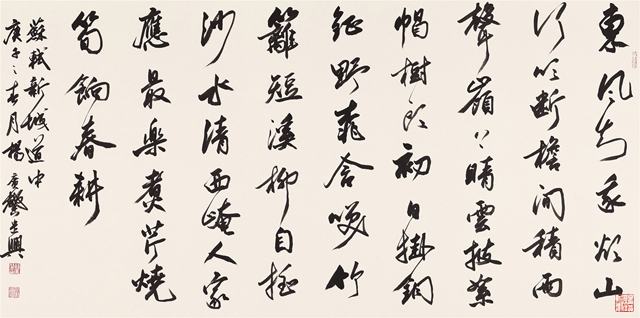 東風知我欲山
行吹斷檐間積雨
聲嶺上晴雲披絮
帽樹頭初日掛銅
鉦野桃含笑竹
籬短溪柳自摇
沙水清西崦人家
應最樂煮芹燒
筍餉春耕
蘇軾新城道中
庚子之春月楊廣馨